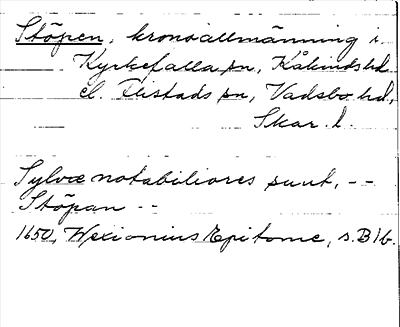 Stöpen, kronoallmänning i
Kyrkefalla sn, Kåkinds hd
el. Flistads sn, Vadsbo hd,
Skar. l.
Sylvæ notabiliores sunt, --
Stöpan --
1650, Wexionius Epitome, s. B1b.